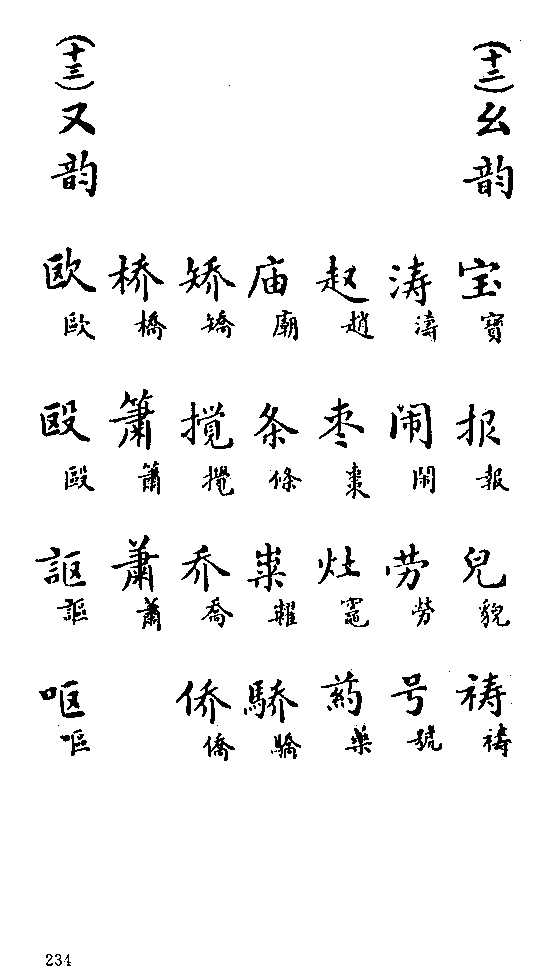 (十二)幺韵
宝 报 皃 祷
寶 報 貌 禱
涛 闹 劳 号
濤 鬧 勞 號
赵 枣 灶 药
趙 棗 竈 藥
庙 条 粜 骄
廟 條 糶 驕
矫 搅 乔 侨
矯 攪 喬 僑
桥 箫 萧
橋 簫 蕭
(十三)又韵
欧 殴 讴 呕
歐 毆 謳 嘔
234